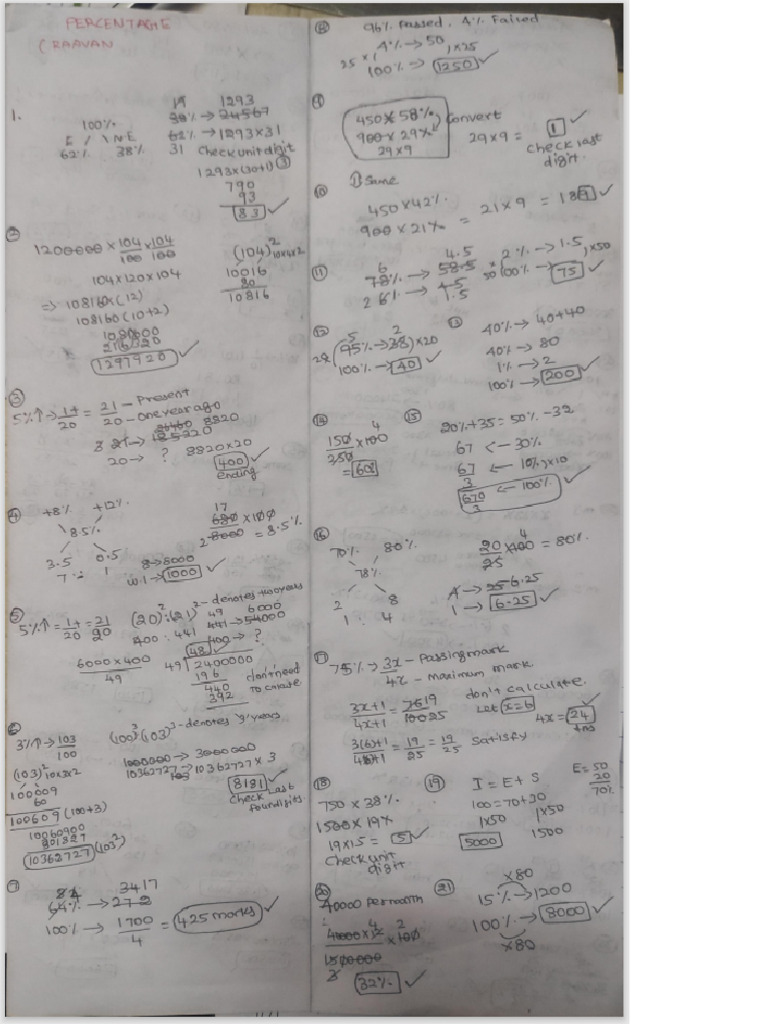 PERCENTAGE
(RAAVAN
1.
100%
62% 38%
1293
62% → 1293×31
31 Check unit digit
1293×(30+1) ③
790
93
83 ✓
1200000 × 104/100 × 104/100
104×120×104
⇒ 108160×(12)
108160(10+2)
216320
1297920 ✓
(104)² 10×4×2
10016
80
10816
③
5%↑ → 1+/20 = 21/20 - Present
- One year ago
20 → ? 8820×20
400 ✓
ending
④ +8% +12%
8.5%
3.5 0.5
7 : 1
17
680/8000 × 100 = 8.5%
8 → 8000
1 → 1000 ✓
⑤
5%↑ = 1+/20 = 21/20
(20)² : (21)² - denotes two years
400 : 441
6000×400/49
49 2400000
196
440
392
48
don't need
to calculate
3%↑ → 103/100
(100)³ (103)³ - denotes 3 years
1000000 → 3000000
10362727 → 10362727×3
8181 ✓
Check last
four digits
(103)² 10×3×2
100009
60
100609 (100+3)
10060900
301827
10362727 (103³)
3417
64% → 272
100% → 1700/4 = 425 marks ✓
⑧ 96% Passed, 4% Failed
4% → 50
25×
100% ⇒ 1250 ✓
450×58% Convert
900×29%
29×9
29×9 = 1 ✓
Check last
digit.
⑩ Same
450×42%
900×21% = 21×9 = 189 ✓
⑪
78% → 58.5
4.5
1.5
2% → 1.5
100% → 75 ✓
×50
⑫
(95% → 38)×20
100% → 40 ✓
⑬ 40% → 40+40
40% → 80
1% → 2
100% → 200 ✓
⑭
150/250 × 100
= 60%
⑮ 20%+35 = 50%-32
67 ← 30%
67/3 ← 10%)×10
670/3 ← 100% ✓
⑯
70% 80%
78%
2 8
1 : 4
20/25 × 100 = 80%
4 → 25
1 → 6.25 ✓
⑰
75% → 3x - Passing mark
4x - maximum mark.
3x+1/4x+1 = 19/25
don't calculate.
Let x=6
3(6)+1/ = 19/25 = 19/25 satisfy
4x = 24 ✓
Ans
⑱
750×38%
1500×19%
19×15 = 5 ✓
Check unit
digit
⑲ I = E + S
100 = 70+30
1×50 1×50
5000 1500
E = 50
20
70%
⑳
40000 Per month
40000×12/1500000 × 100
32% ✓
㉑
×80
15% → 1200
100% → 8000 ✓
×80